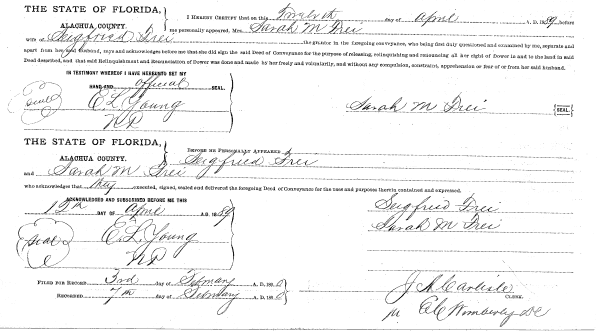 THE STATE OF FLORIDA,
ALACHUA COUNTY.
I HEREBY CERTIFY that on this Twelfth day of April A. D. 1889, before
me personally appeared, Mrs. Sarah M Frei
wife of Siegfried Frei the grantor in the foregoing conveyance, who being first duly questioned and examined by me, separate and
apart from her said husband, says and acknowledges before me that she did sign the said Deed of Conveyance for the purpose of releasing, relinquishing and renouncing all her right of Dower in and to the land in said
Deed described, and that said Relinquishment and Renunciation of Dower was done and made by her freely and voluntarily, and without any compulsion, constraint, apprehension or fear of or from her said husband.
IN TESTIMONY WHEREOF I HAVE HEREUNTO SET MY
HAND AND official SEAL.
seal
E. L. Young
NP
Sarah M Frei SEAL.
THE STATE OF FLORIDA,
ALACHUA COUNTY.
BEFORE ME PERSONALLY APPEARED Siegfried Frei
and Sarah M. Frei
who acknowledges that they executed, signed, sealed and delivered the foregoing Deed of Conveyance for the uses and purposes therein contained and expressed.
ACKNOWLEDGED AND SUBSCRIBED BEFORE ME THIS
12th DAY OF April A. D. 1889
seal
E. L. Young
NP
Siegfried Frei
Sarah M Frei
FILED FOR RECORD 3rd day of February A. D. 18
RECORDED 7th day of February A. D. 18
J A Carlisle
CLERK.
Wimberly DC